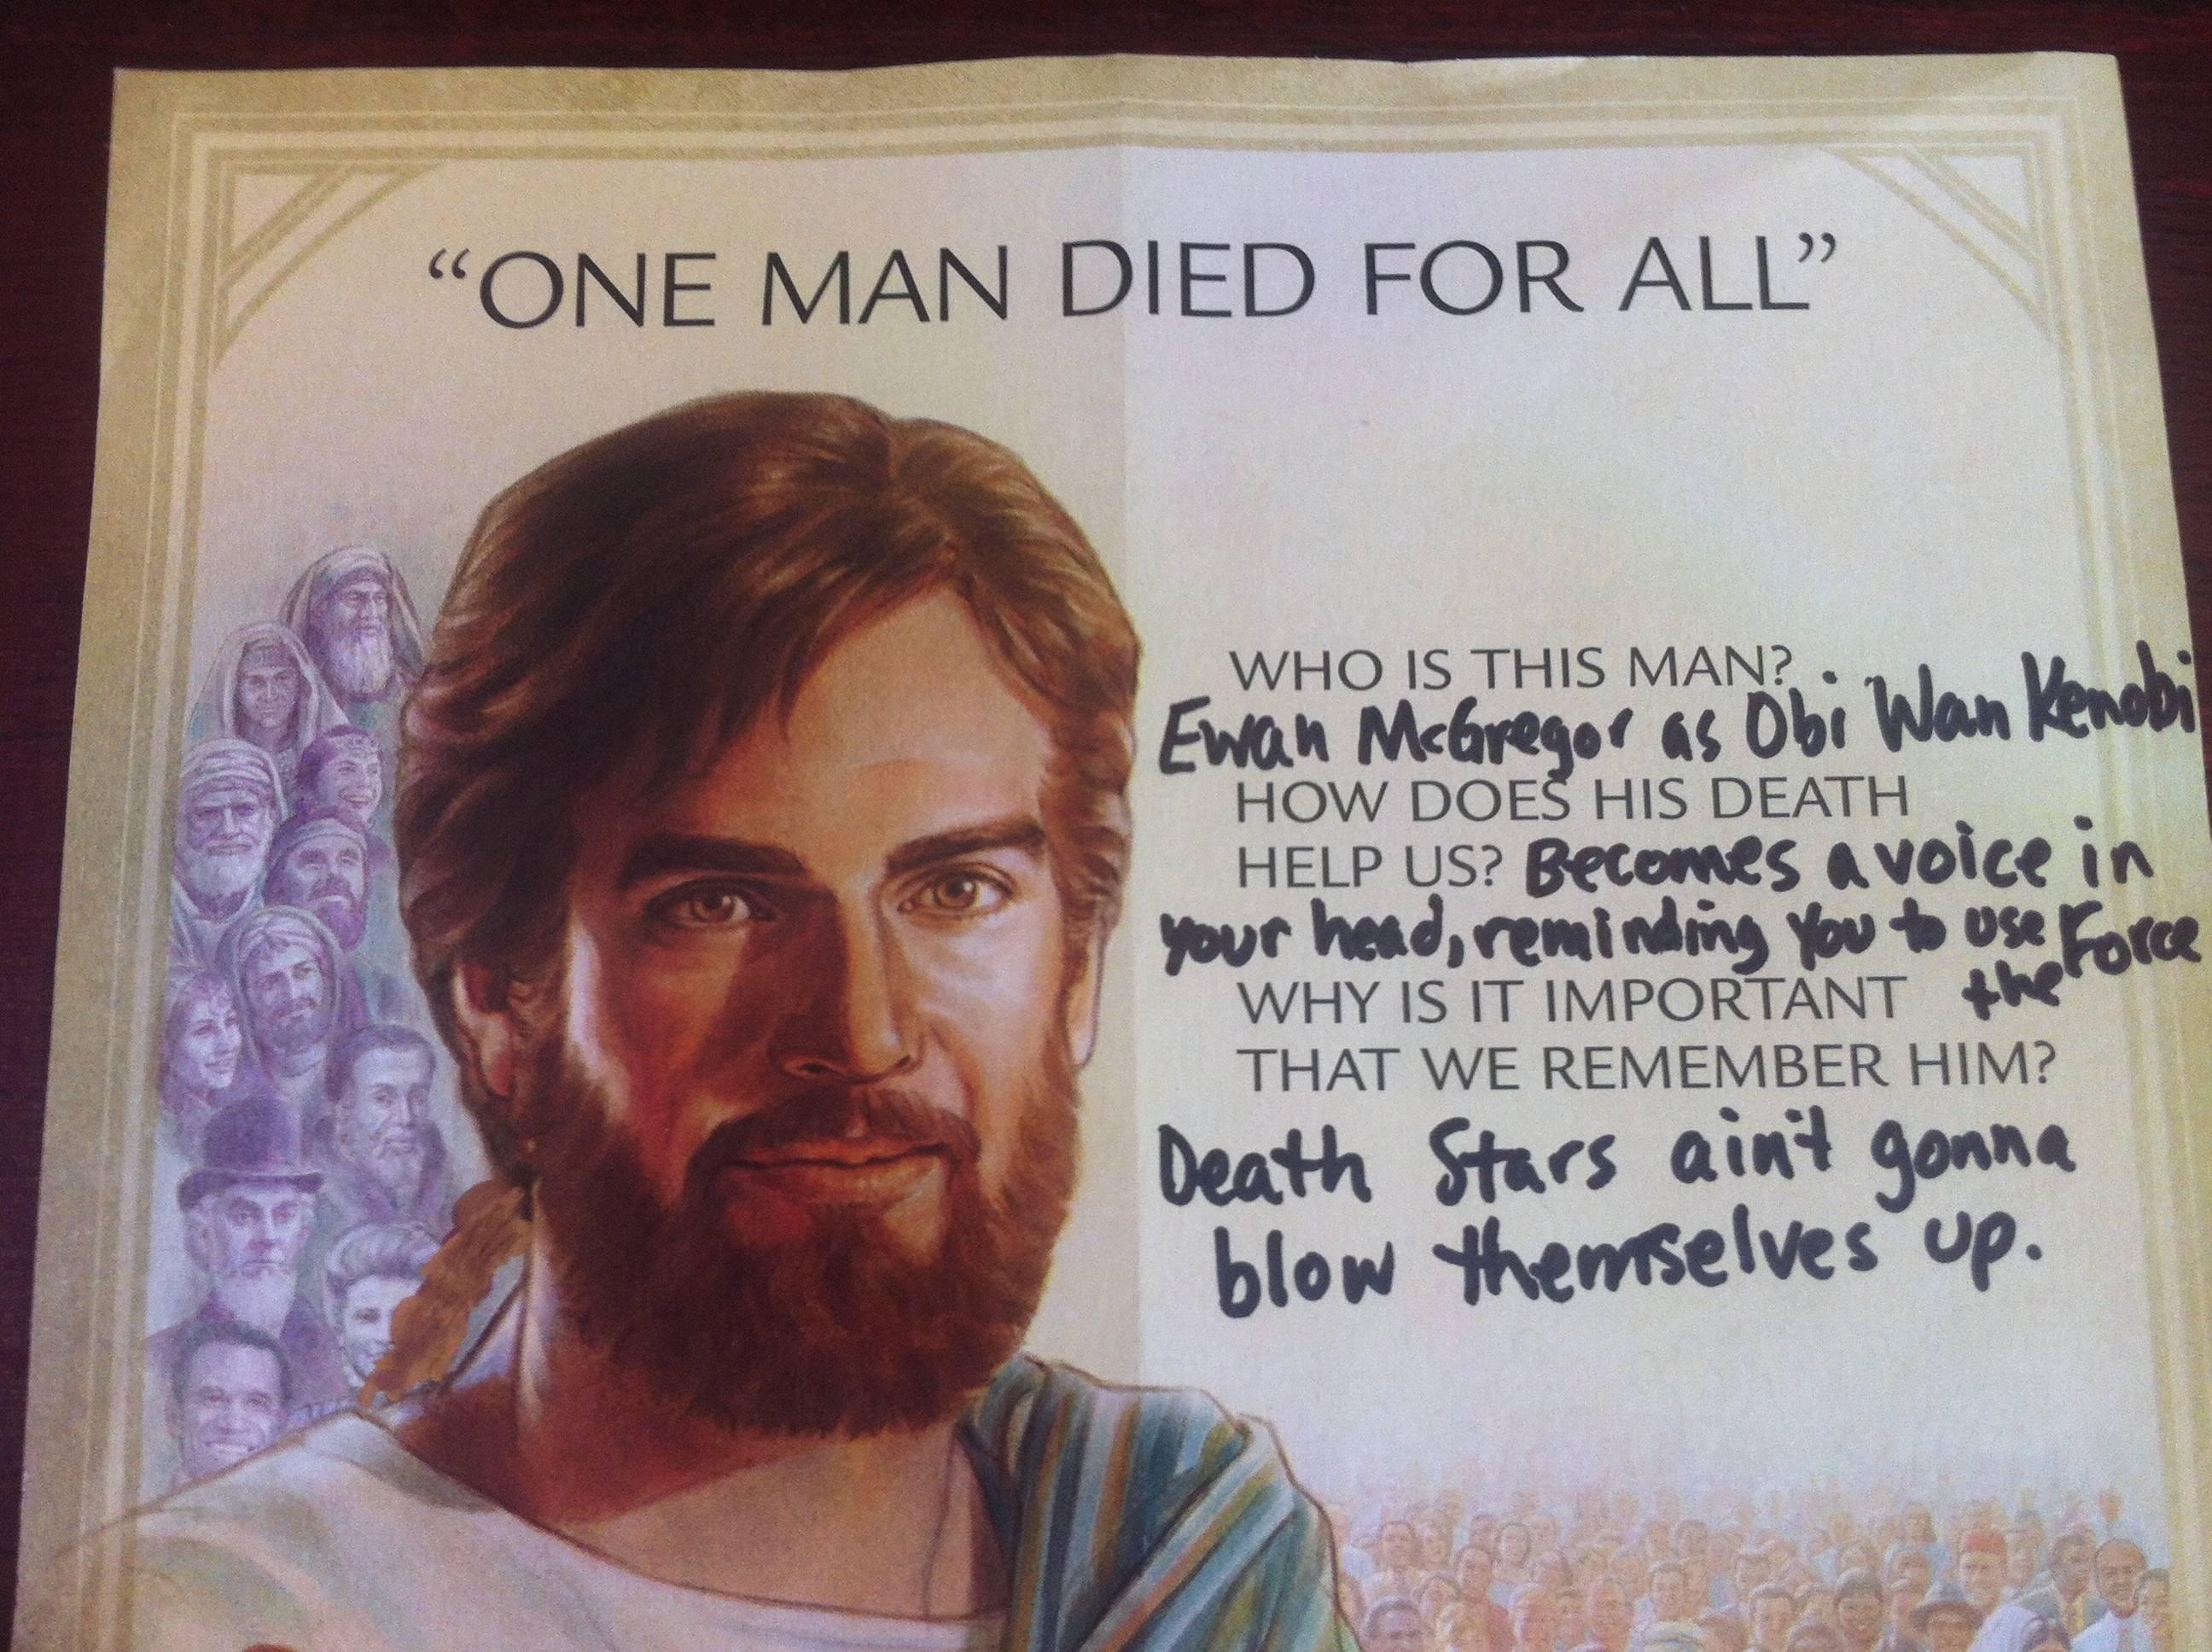 “ONE MAN DIED FOR ALL”
WHO IS THIS MAN?
Ewan McGregor as Obi Wan Kenobi
HOW DOES HIS DEATH
HELP US? Becomes a voice in
your head, reminding you to use the Force
WHY IS IT IMPORTANT
THAT WE REMEMBER HIM?
Death Stars ain't gonna
blow themselves up.